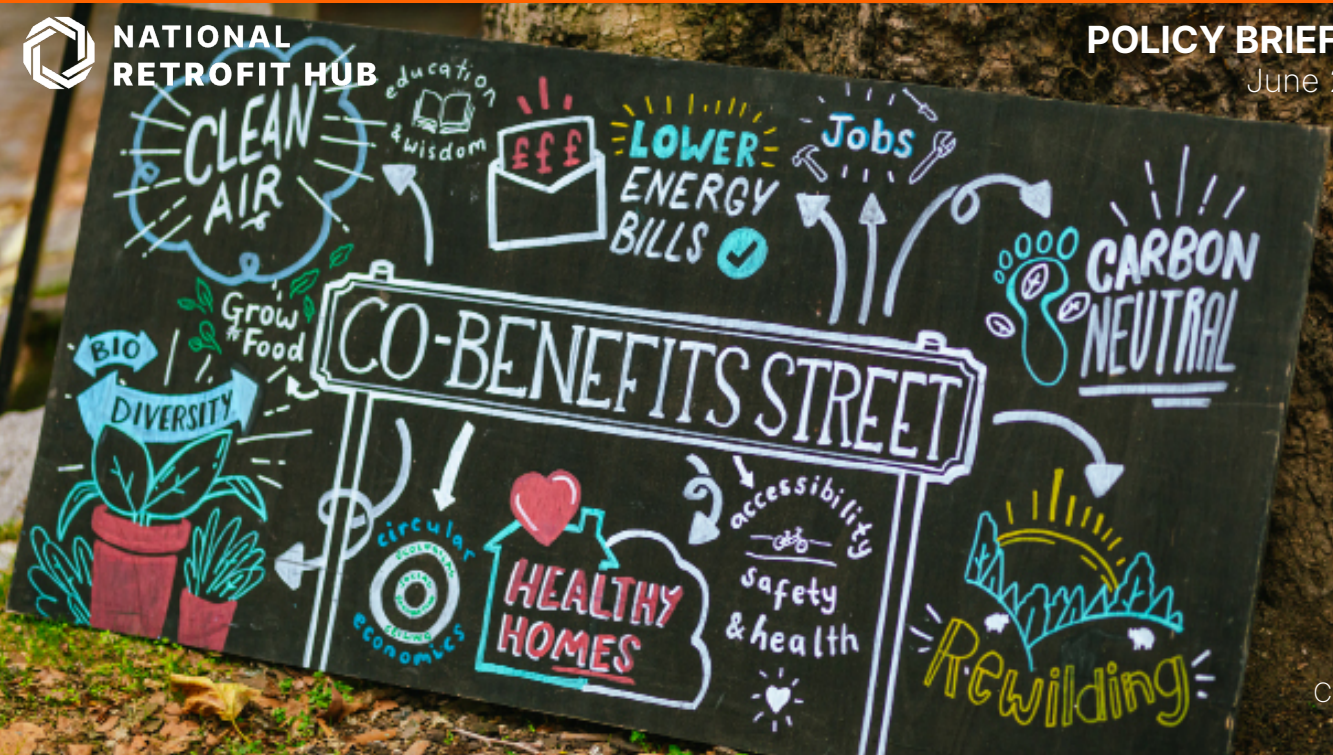 NATIONAL
RETROFIT HUB
POLICY BRIEF
June
CLEAN
AIR
education
& wisdom
£££
LOWER
ENERGY
BILLS
Jobs
CARBON
NEUTRAL
Grow
Food
BIO
DIVERSITY
CO-BENEFITS STREET
circular
economies
HEALTHY
HOMES
accessibility
safety
& health
Rewilding
C